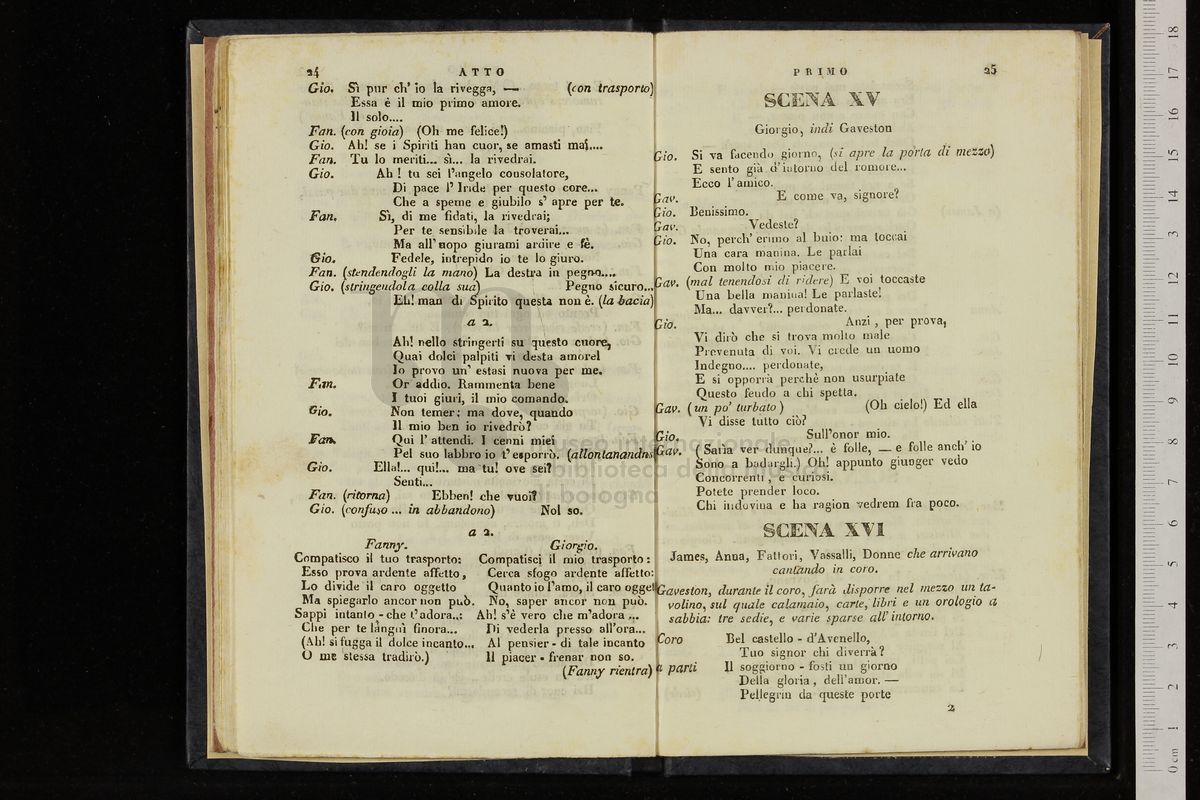 24 ATTO
Gio. Sì pur ch' io la rivegga, — (con trasporto)
Essa è il mio primo amore.
Il solo....
Fan. (con gioia) (Oh me felice!)
Gio. Ah! se i Spiriti han cuor, se amasti mai....
Fan. Tu lo meriti... sì... la rivedrai.
Gio. Ah! tu sei l'angelo consolatore,
Di pace l' Iride per questo core...
Che a speme e giubilo s' apre per te.
Fan. Sì, di me fidati, la rivedrai;
Per te sensibile la troverai...
Ma all' uopo giurami ardire e fè.
Gio. Fedele, intrepido io te lo giuro.
Fan. (stendendogli la mano) La destra in pegno....
Gio. (stringendola colla sua) Pegno sicuro...
Eh! man di Spirito questa non è. (la bacia)
a 2.
Ah! nello stringerti su questo cuore,
Quai dolci palpiti vi desta amore!
Io provo un' estasi nuova per me.
Fan. Or addio. Rammenta bene
I tuoi giuri, il mio comando.
Gio. Non temer: ma dove, quando
Il mio ben io rivedrò?
Fan. Qui l' attendi. I cenni miei
Pel suo labbro io t' esporrò. (allontanandosi
Gio. Ella!... qui!... ma tu! ove sei?
Senti...
Fan. (ritorna) Ebben! che vuoi?
Gio. (confuso ... in abbandono) Nol so.
a 2.
Fanny.
Compatisco il tuo trasporto:
Esso prova ardente affetto,
Lo divide il caro oggetto
Ma spiegarlo ancor non può.
Sappi intanto - che t'adora...
Che per te languì finora...
(Ah! si fugga il dolce incanto...
O me stessa tradirò.)
Giorgio.
Compatisci il mio trasporto:
Cerca sfogo ardente affetto:
Quanto io l'amo, il caro ogget
No, saper ancor non può.
Ah! s'è vero che m'adora ...
Di vederla presso all'ora...
Al pensier - di tale incanto
Il piacer - frenar non so.
(Fanny rientra)
PRIMO 25
SCENA XV
Giorgio, indi Gaveston
Gio. Si va facendo giorno, (si apre la porta di mezzo)
E sento già d'intorno del romore...
Ecco l'amico.
Gav. E come va, signore?
Gio. Benissimo.
Gav. Vedeste?
Gio. No, perch' erimo al buio: ma toccai
Una cara manina. Le parlai
Con molto mio piacere.
Gav. (mal tenendosi di ridere) E voi toccaste
Una bella manina! Le parlaste!
Ma... davver?... perdonate.
Gio. Anzi, per prova,
Vi dirò che si trova molto male
Prevenuta di voi. Vi crede un uomo
Indegno.... perdonate,
E si opporrà perchè non usurpiate
Questo feudo a chi spetta.
Gav. (un po' turbato) (Oh cielo!) Ed ella
Vi disse tutto ciò?
Gio. Sull'onor mio.
Gav. (Saria ver dunque?... è folle, — e folle anch' io
Sono a badargli.) Oh! appunto giunger vedo
Concorrenti, e curiosi.
Potete prender loco.
Chi indovina e ha ragion vedrem fra poco.
SCENA XVI
James, Anna, Fattori, Vassalli, Donne che arrivano
cantando in coro.
Gaveston, durante il coro, farà disporre nel mezzo un ta-
volino, sul quale calamaio, carte, libri e un orologio a
sabbia: tre sedie, e varie sparse all' intorno.
Coro Bel castello - d'Avenello,
Tuo signor chi diverrà?
a parti Il soggiorno - fosti un giorno
Della gloria, dell'amor. —
Pellegrin da queste porte
2
museo internazionale
e biblioteca della musica
di bologna
0 cm 1 2 3 4 5 6 7 8 9 10 11 12 13 14 15 16 17 18